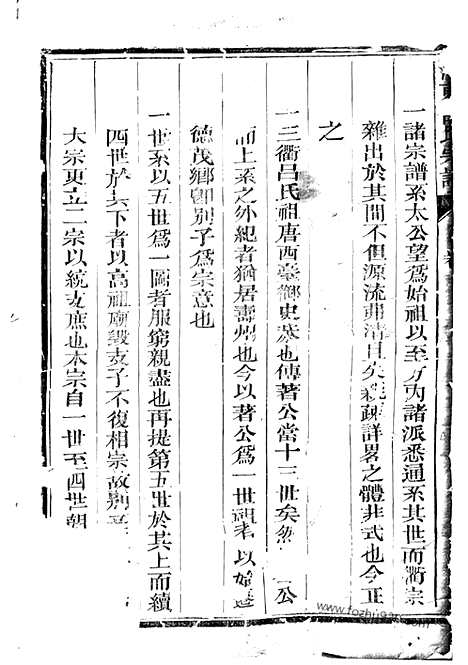 一諸宗譜系太公望爲始祖以至方內諸派悉通系其世而衢宗
雜出於其間不但源流 清且失親疎詳畧之體非式也今正
之
一三衢吕氏祖唐西臺御史 也傳著公當十三世矣然 公
而上系之外紀者猶居壽州也今以著公爲一世觀 以 遷
德茂鄉卽別子爲宗意也
一世系以五世爲一圖者服窮親盡也再提第五世於其上而續
四世於其下者以高祖廟毀支子不復相宗故別
大宗更立二宗以統支庶也本宗自一世至四世朝
www.fozhu920.com